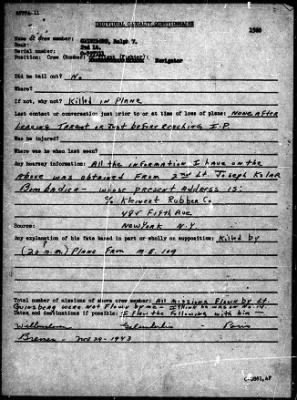 INDIVIDUAL CASUALTY QUESTIONNAIRE
Name of crew member: Ralph V.
Rank: 2nd Lt.
Serial number:
Position: Crew (bomber) Navigator
Did he bail out? No
Where?
If not, why not? Killed in Plane
Last contact or conversation just prior to or at time of loss of plane: None after
leaving Target or Just before reaching I.P.
Was he injured?
Where was he when last seen?
Any hearsay information: All the information I have on the
above was obtained from 2nd Lt. Joseph Kolar
Bombadier - whose present address is:
% Rubber Co
Fifth Ave
Source: New York N.Y
Any explanation of his fate based in part or wholly on supposition: Killed by
(20 m.m) Plane From M.E. 109
Total number of missions of above crew member: All missions Flown by Lt.
were not Flown by me - I think he was on No. 14.
Dates and destinations if possible: I flew the following with him -
- Paris
Bremen - Nov 29 - 1943